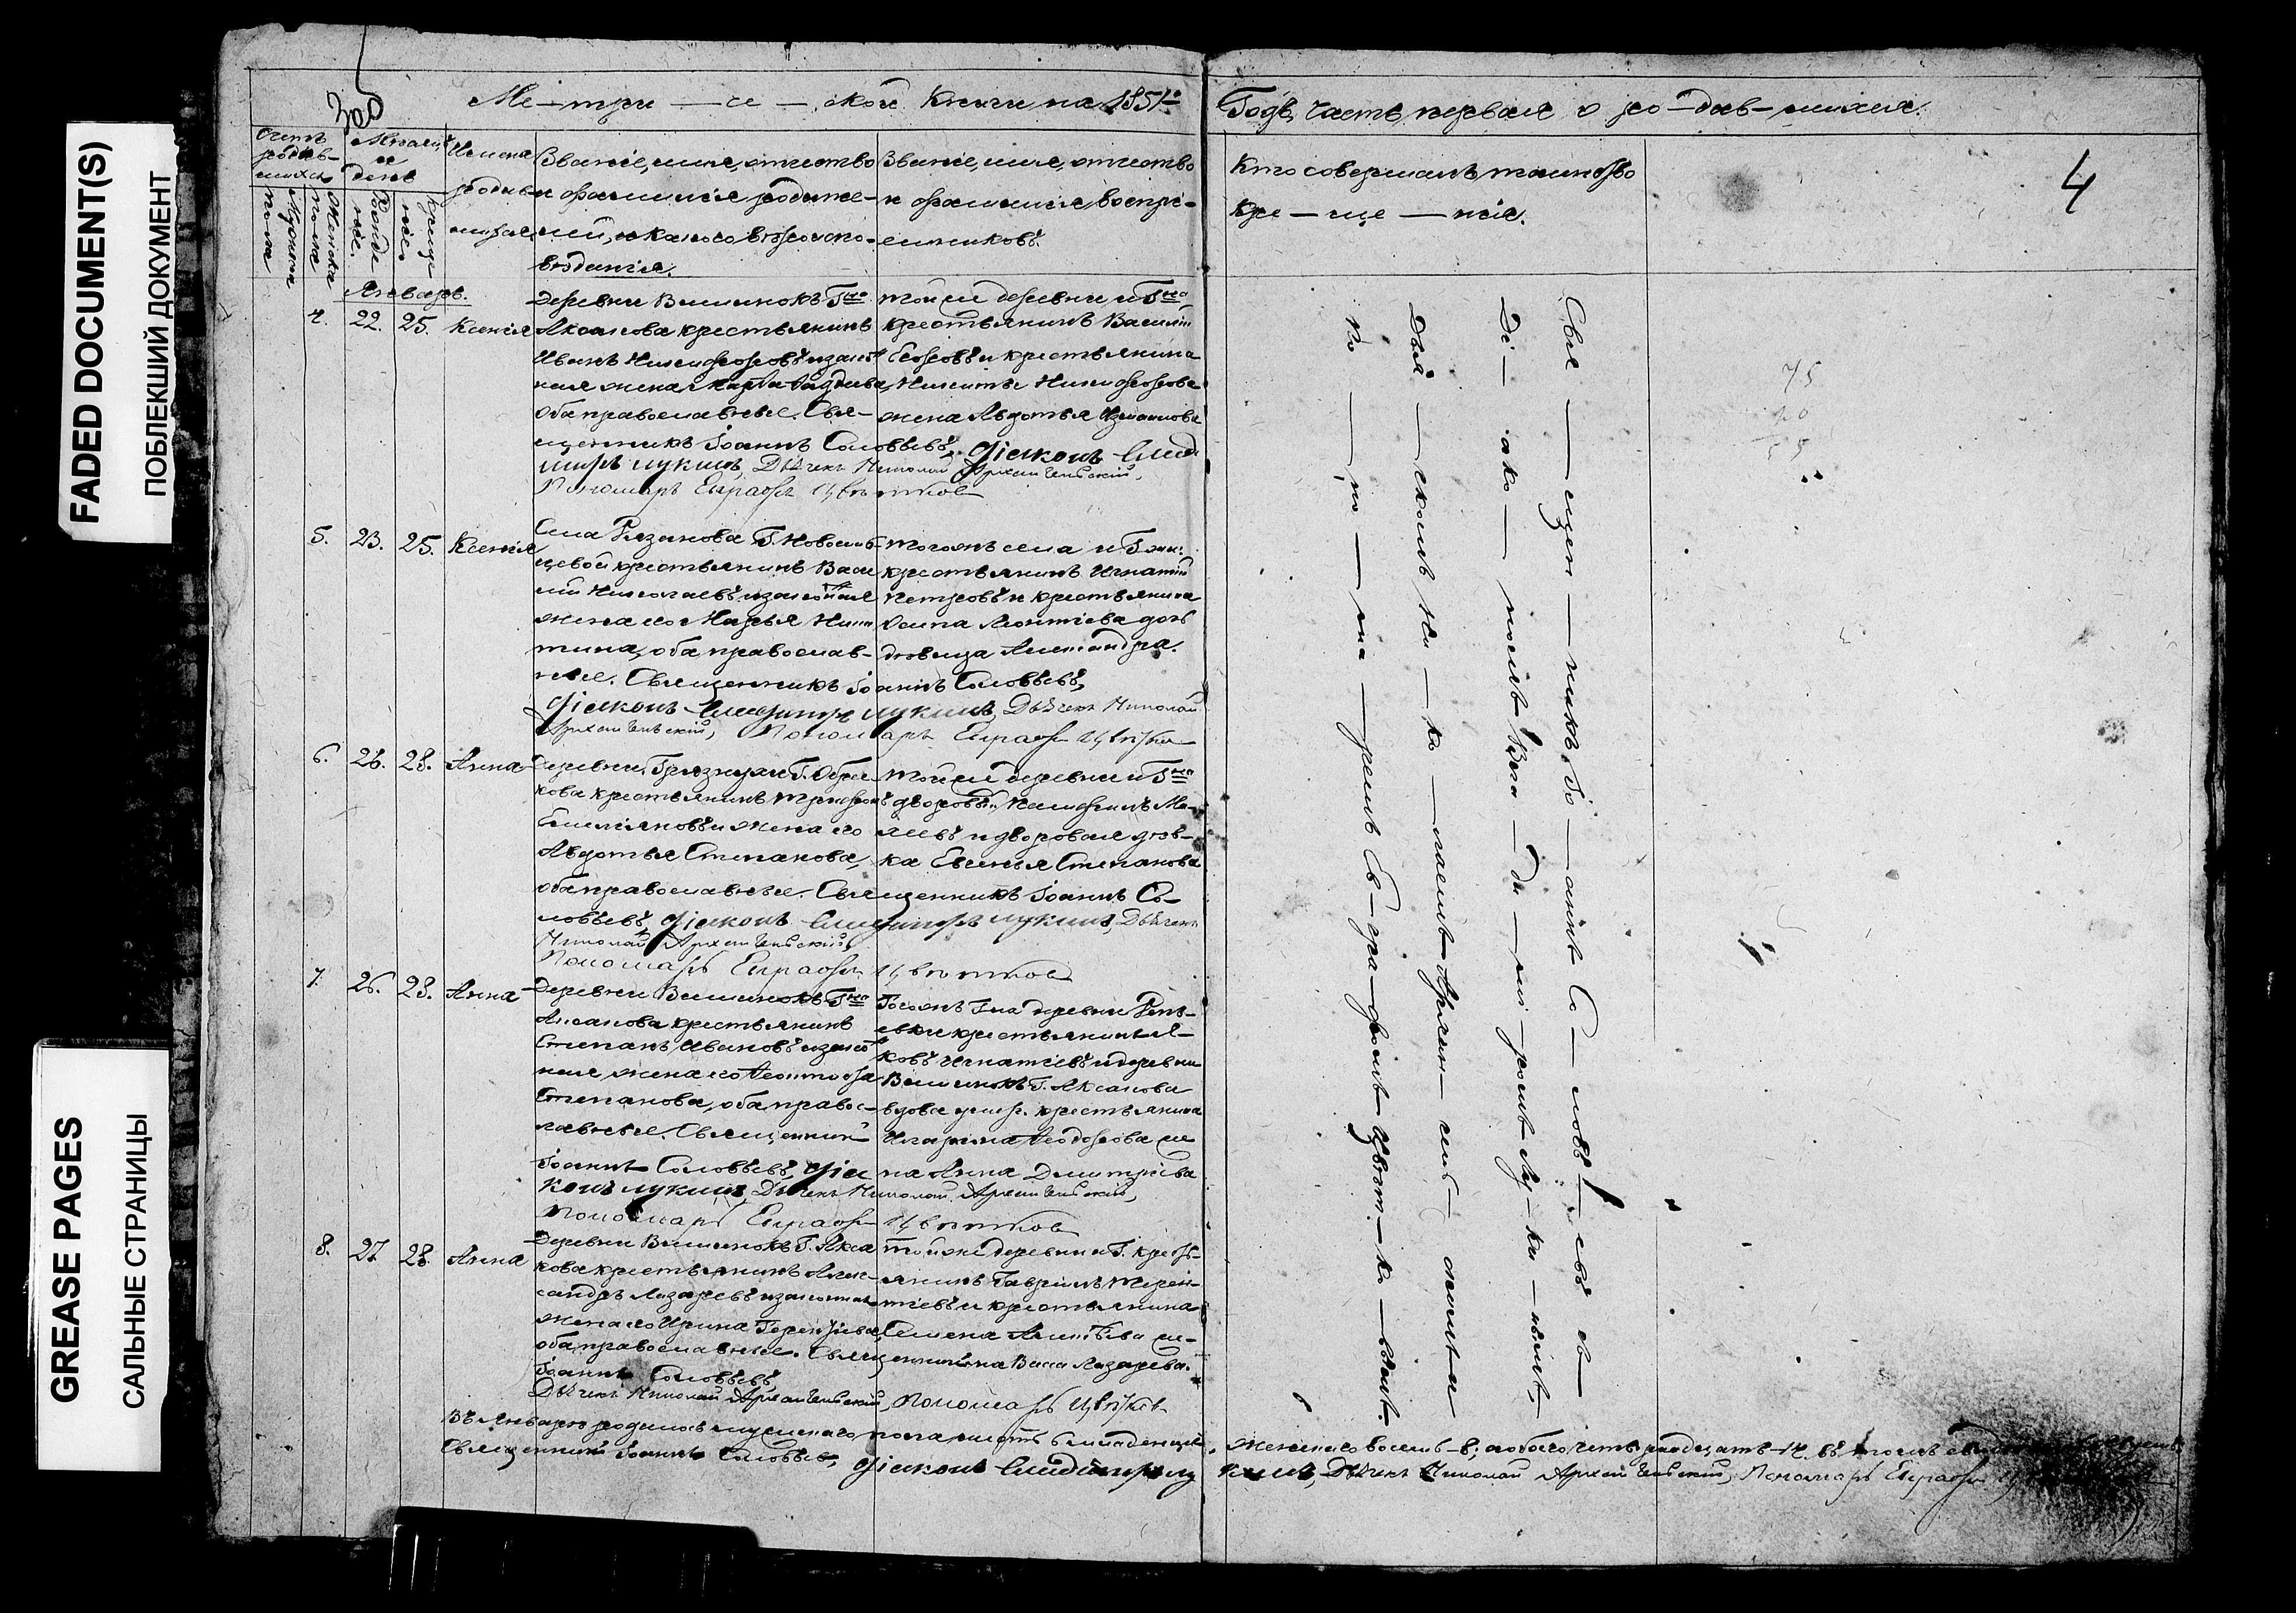 FADED DOCUMENT(S)
ПОБЛЕКШИЙ ДОКУМЕНТ
GREASE PAGES
САЛЬНЫЕ СТРАНИЦЫ
Ме-три-че-ской Книги на 1851й
Годъ, часть первая о ро-див-шихся.
4
Счетъ родив-шихся
Мужеска пола
Женска пола
Месяцъ и день
Рожде нія
Креще нія
Имена родив-шихся
Званіе, имя, отчество
и фамилія родите-
лей, и какого вѣроиспо-
вѣданія.
Званіе, имя, отчество
и фамилія воспрі-
емниковъ.
Кто совершалъ таинство
Кре-ще-нія.
Январь.
4. 22. 25. Ксенія
Деревни Вишнокъ Гна
Аксакова крестьянинъ
Иванъ Никифоровъ и закон
ная жена
оба православные. Свя-
щенникъ Іоаннъ Соловьевъ, Діаконъ
Лукинъ, Дьячекъ Николай Архангельскій,
Пономарь Евграфъ Цвѣтковъ
той же деревни и Гна
крестьянинъ Василій
и крестьянина
Никиты Никифорова
жена Авдотья
5. 23. 25. Ксенія
Села Рязанова Г. Новосиль-
цевой крестьянинъ Васи
лій Николаевъ и законная
жена его Марья Ники
тина, оба православ-
ные. Священникъ Іоаннъ Соловьевъ,
Діаконъ Владиміръ Лукинъ, Дьячекъ Николай
Архангельскій, Пономарь Евграфъ Цвѣтковъ
тогожъ села и Гжи
крестьянинъ Игнатій
Петровъ и крестьянина
Осипа Леонтіева дочь
дѣвица Александра.
6. 26. 28. Анна
Деревни Грязнухи Г. Обрез
кова крестьянинъ Трифонъ
Емеліяновъ и жена его
Авдотья Степанова,
оба православные. Священникъ Іоаннъ Со-
ловьевъ, Діаконъ Владиміръ Лукинъ, Дьячекъ
Николай Архангельскій,
Пономарь Евграфъ Цвѣтковъ
той же деревни и Гна
дворовый
и дворовая дѣв-
ка Евгенья Степанова
7. 26. 28. Анна
Деревни Вишнокъ Гна
Аксакова крестьянинъ
Степанъ Ивановъ и закон
ная жена его
Степанова, оба правос-
лавные. Священникъ
Іоаннъ Соловьевъ, Діа
конъ Лукинъ, Дьячекъ Николай Архангельскій,
Пономарь Евграфъ Цвѣтковъ
Тогожъ Гна деревни Репь-
евки крестьянинъ Я-
ковъ Игнатіевъ и деревни
Вишнокъ Г. Аксакова
вдова умер. крестьянина
Илариона Ѳеодорова же
на Анна Дмитріева
8. 27. 28. Анна
Деревни Вишнокъ Г. Акса
кова крестьянинъ Алек-
сандръ Лазаревъ и законная
жена его Ирина Терентьева,
оба православные. Священникъ
Іоаннъ Соловьевъ
Дьячекъ Николай Архангельскій, Пономарь Цвѣтковъ
той же деревни и Г. кресть-
янинъ Гавріилъ Терен-
тіевъ и крестьянина
Семена Алексѣева же-
на Васса Лазарева.
Свя-щен-никъ Іо-аннъ Со-ловь-евъ съ
Ді-ако-номъ Вла-ди-міромъ Лу-ки-нымъ,
Дья-чкомъ Ни-ко-лаемъ Архан-гель-скимъ и
по-но-ма-ремъ Ев-гра-фомъ Цвѣт-ко-вымъ.
75
20
55
Въ Январѣ родилось мужескаго пола шесть 6 младенцевъ
женскаго восемь-8; а обоего четырнадцать-14. въ томъ
Священникъ Іоаннъ Соловьевъ, Діаконъ Владиміръ Лу
кинъ, Дьячекъ Николай Архангельскій, Пономарь Евграфъ